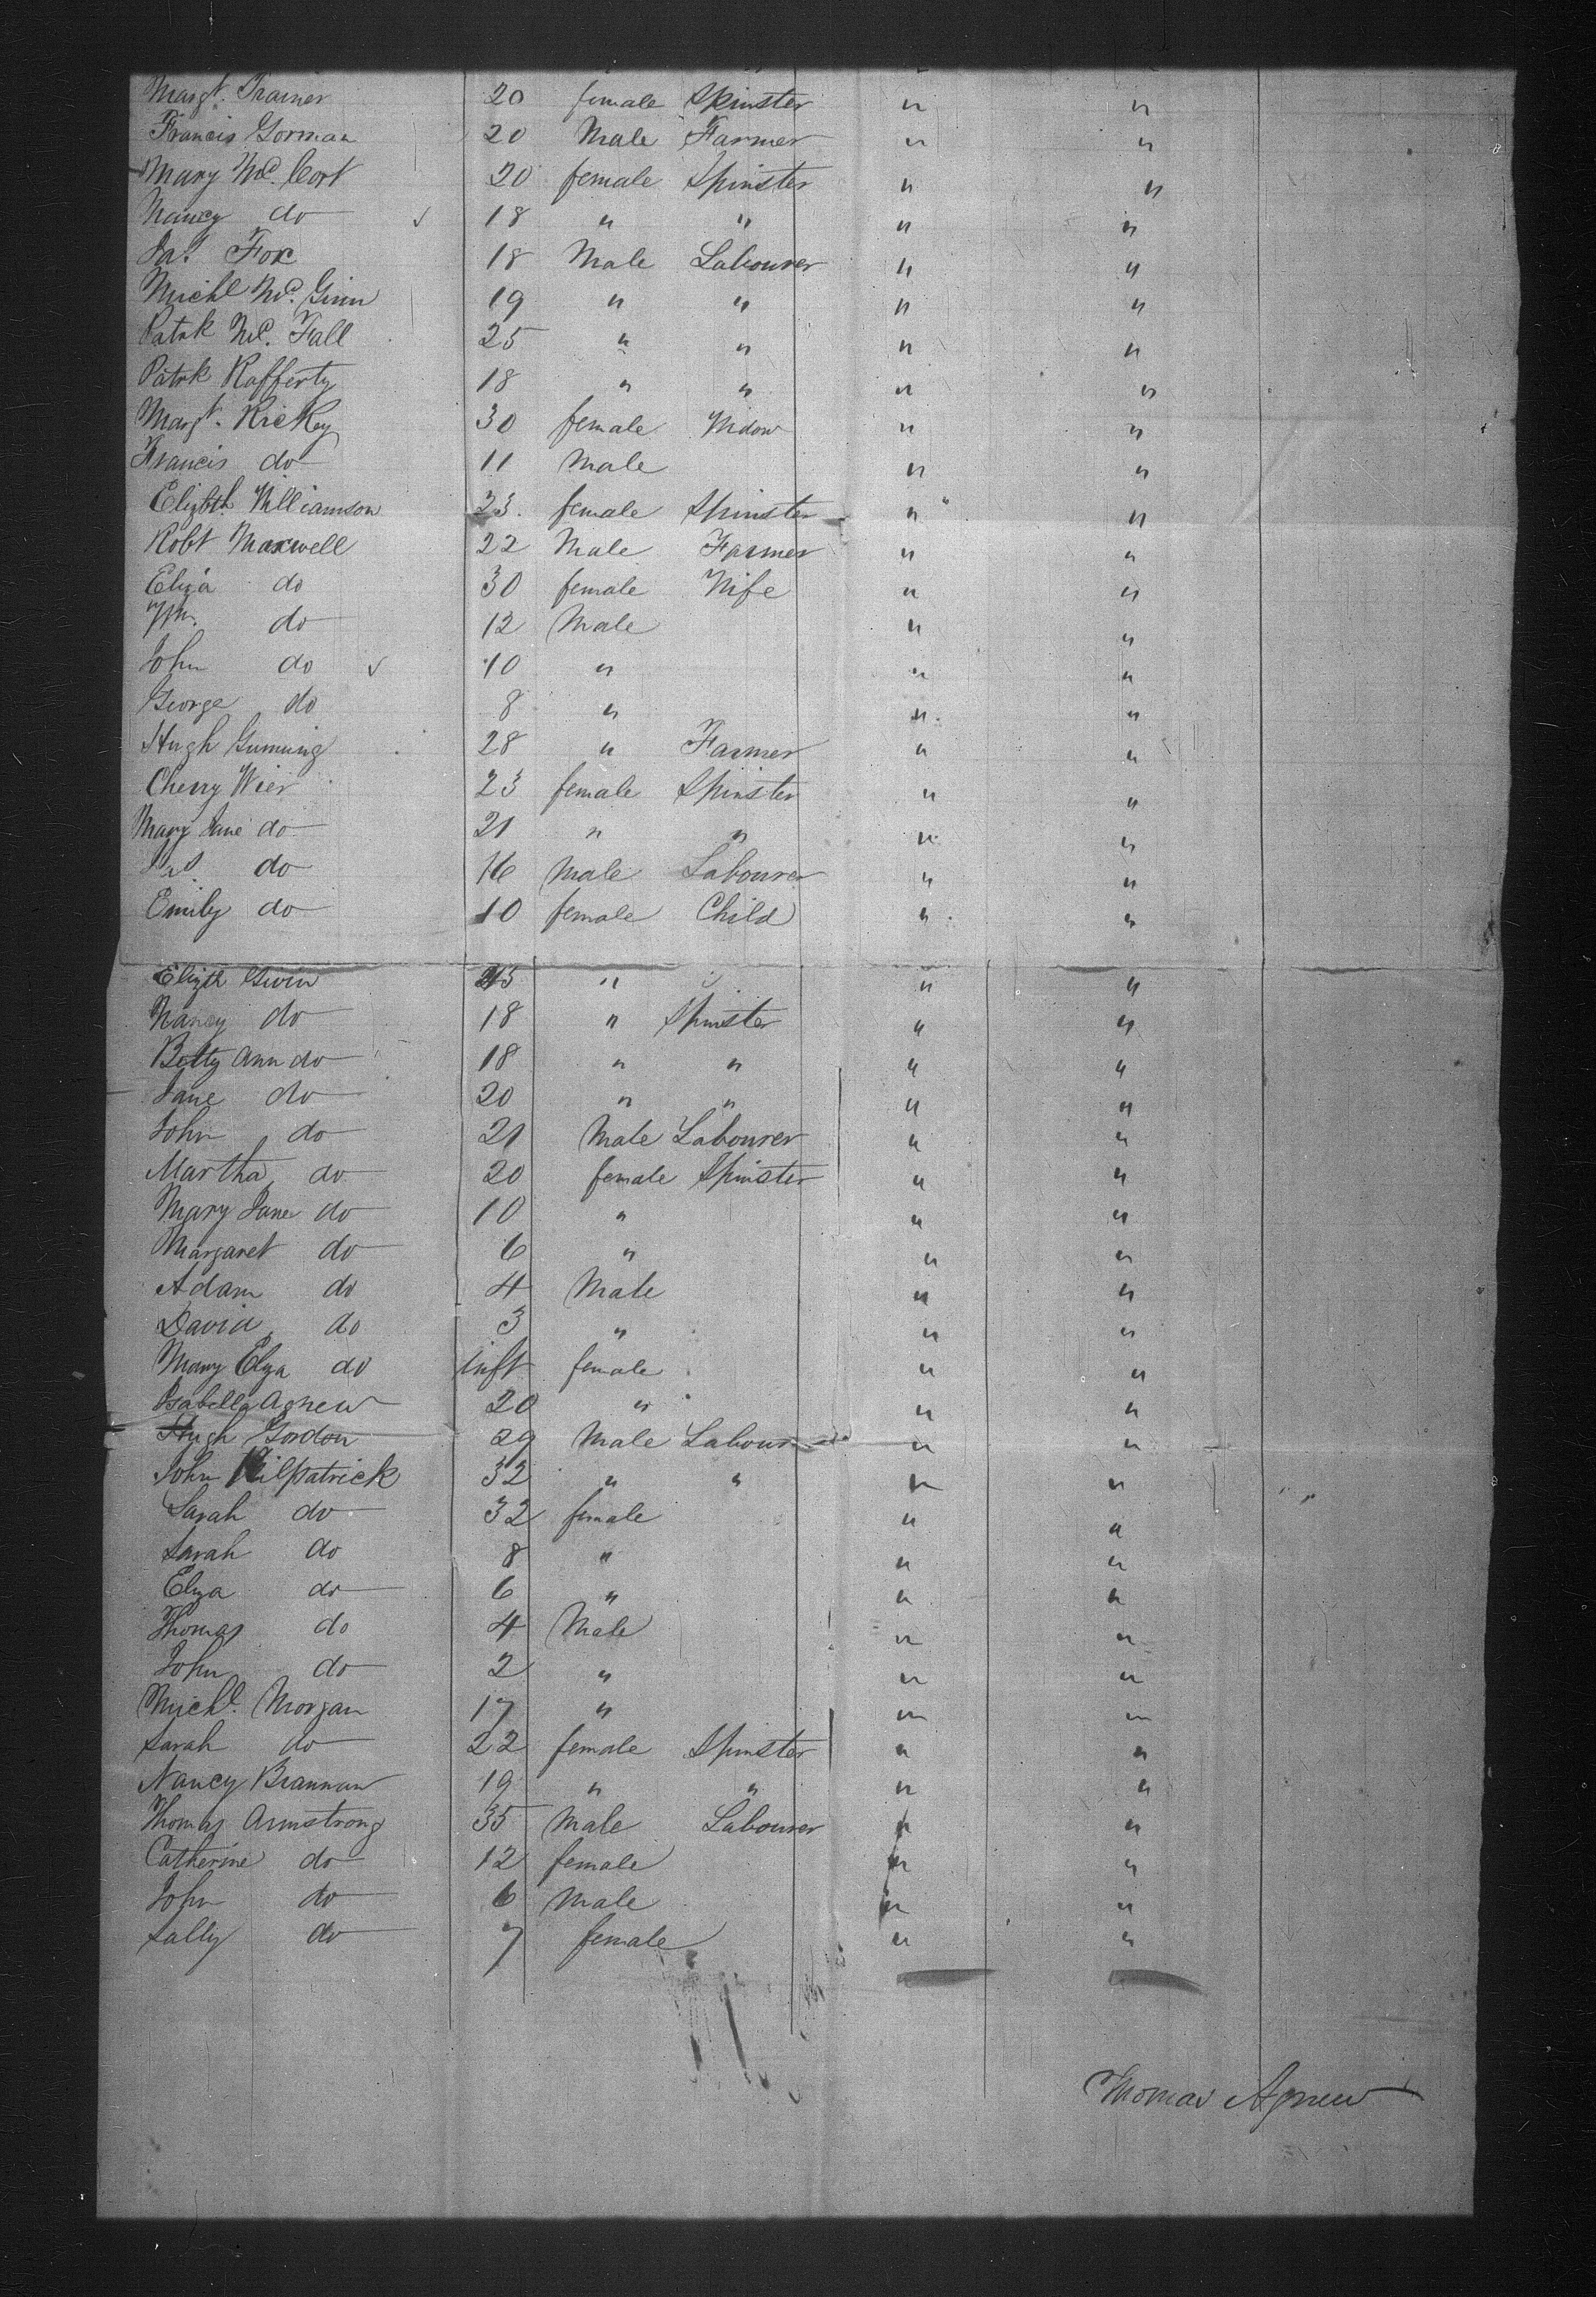 Margt. Trainer 20 female Spinster " "
Francis Gorman 20 Male Farmer " "
Mary Mc. Cort 20 female Spinster " "
Nancy do 18 " " " "
Jas. Fox 18 Male Labourer " "
Michl Mc. Ginn 19 " " " "
Patrk Mc. Fall 25 " " " "
Patrk Rafferty 18 " " " "
Margt. Rickey 30 female Widow " "
Francis do 11 Male " "
Elizbth Williamson 23. female Spinster " "
Robt Maxwell 22 Male Farmer " "
Eliza do 30 female Wife " "
Wm. do 12 Male " "
John do 10 " " "
George do 8 " " "
Hugh 28 " Farmer " "
Cherry Wier 23 female Spinster " "
Mary Jane do 21 " " " "
Jas. do 16 Male Labourer " "
Emily do 10 female Child " "
Elizth " " "
Nancy do 18 " Spinster " "
Betty Ann do 18 " " " "
Jane do 20 " " " "
John do 21 Male Labourer " "
Martha do 20 female Spinster " "
Mary Jane do 10 " " "
Margaret do 6 " " "
Adam do 4 Male " "
David do 3 " " "
Mary Elza do inft female " "
Isabella Agnew 20 " " "
Hugh Gordon 29 Male Labour " "
John Kilpatrick 32 " " " "
Sarah do 32 female " "
Sarah do 8 " " "
Elza do 6 " " "
Thomas do 4 Male " "
John do 2 " " "
Michl. Morgan 17 " " "
Sarah do 22 female Spinster " "
Nancy Brannan 19 " " " "
Thomas Armstrong 35 Male Labourer " "
Catherine do 12 female " "
John do 6 Male " "
Sally do 7 female " "
Thomas Agnew